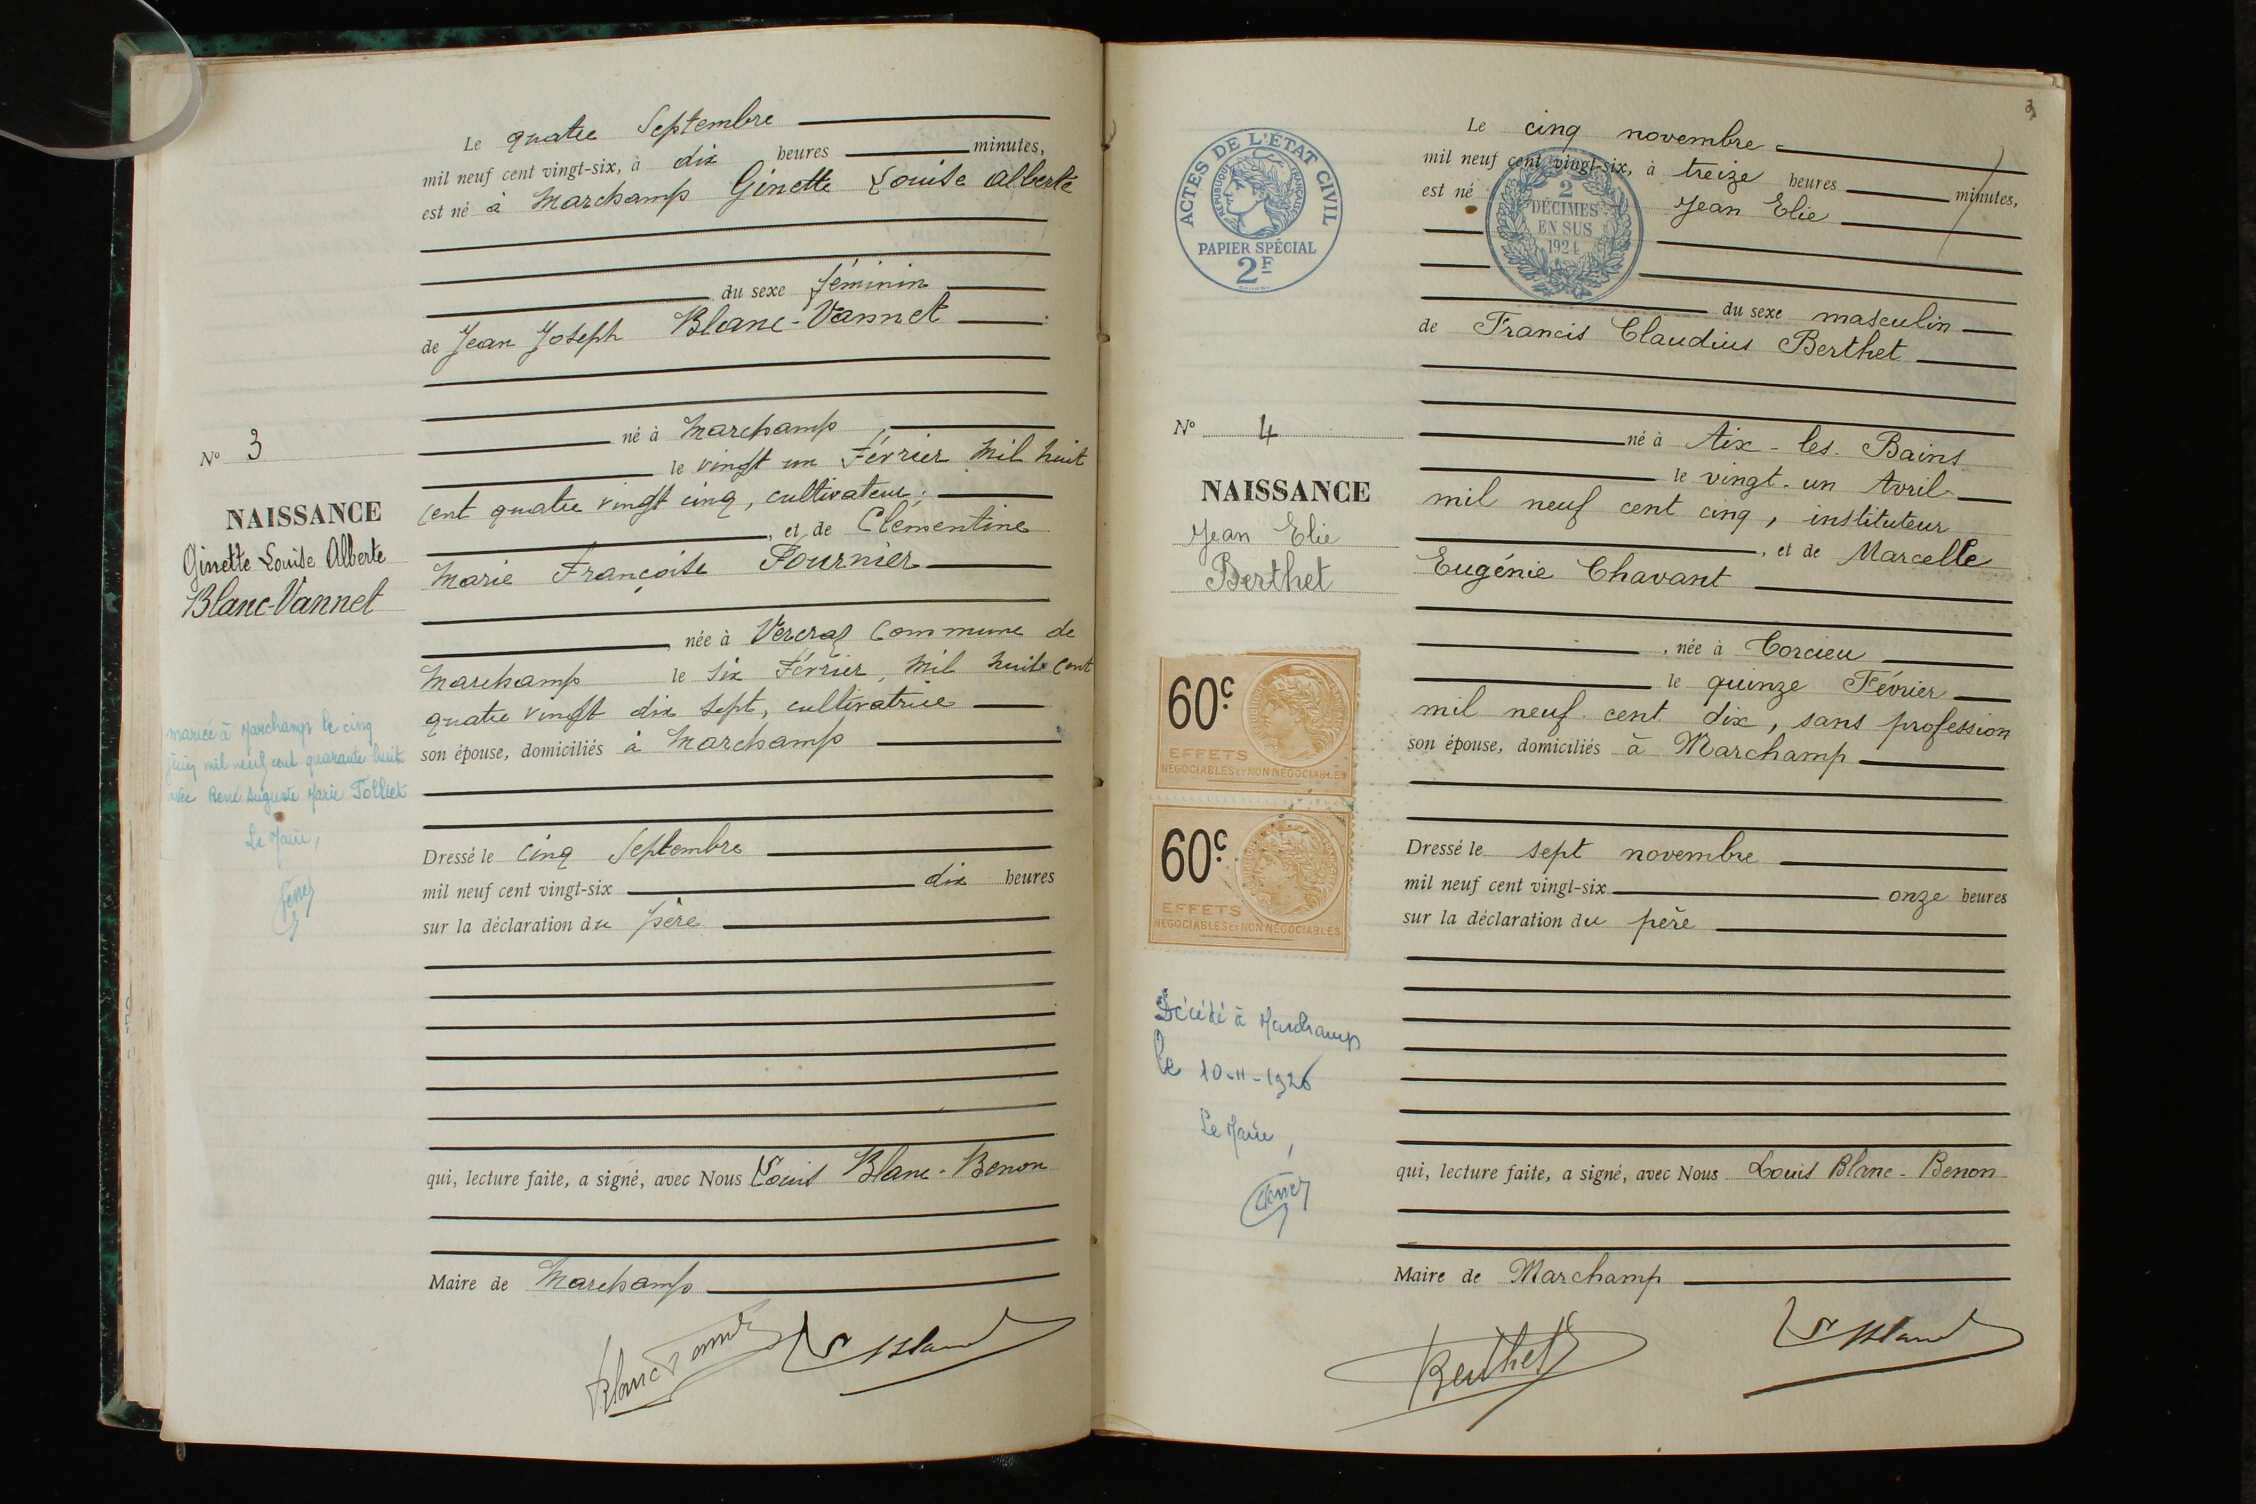 Le quatre Septembre
mil neuf cent vingt-six, à dix heures minutes,
est né à Marchamp Ginette Louise Alberte
du sexe féminin
de Jean Joseph Blanc-Vannet
né à Marchamp,
le vingt un Février Mil huit
cent quatre vingt cinq, cultivateur;
, et de Clémentine
Marie Françoise Fournier
, née à Vercraz Commune de
Marchamp le six Février, Mil huit cent
quatre vingt dix sept, cultivatrice
son épouse, domiciliés à Marchamp
Dressé le cinq Septembre
mil neuf cent vingt-six dix heures
sur la déclaration du père
qui, lecture faite, a signé, avec Nous Louis Blanc-Benon
Maire de Marchamp
Nº 3
NAISSANCE
Ginette Louise Alberte
Blanc-Vannet
mariée à Marchamp le cinq
juin mil neuf cent quarante huit
avec René Auguste Marie Tolliet
Le Maire,
3
ACTES DE L'ÉTAT CIVIL
RÉPUBLIQUE FRANÇAISE
PAPIER SPÉCIAL
2F
2
DÉCIMES
EN SUS
1924
Le cinq novembre
mil neuf cent vingt-six, à treize heures minutes,
est né Jean Elie
du sexe masculin
de Francis Claudius Berthet
né à Aix-les-Bains
le vingt-un Avril
mil neuf cent cinq, instituteur
, et de Marcelle
Eugénie Chavant
, née à Torcieu
le quinze Février
mil neuf cent dix, sans profession
son épouse, domiciliés à Marchamp
Dressé le sept novembre
mil neuf cent vingt-six onze heures
sur la déclaration du père
qui, lecture faite, a signé, avec Nous Louis Blanc-Benon
Maire de Marchamp
Berthet
Nº 4
NAISSANCE
Jean Elie
Berthet
60c
EFFETS
NÉGOCIABLES ET NON NÉGOCIABLES
60c
EFFETS
NÉGOCIABLES ET NON NÉGOCIABLES
Décédé à Marchamp
le 10-11-1926
Le Maire,